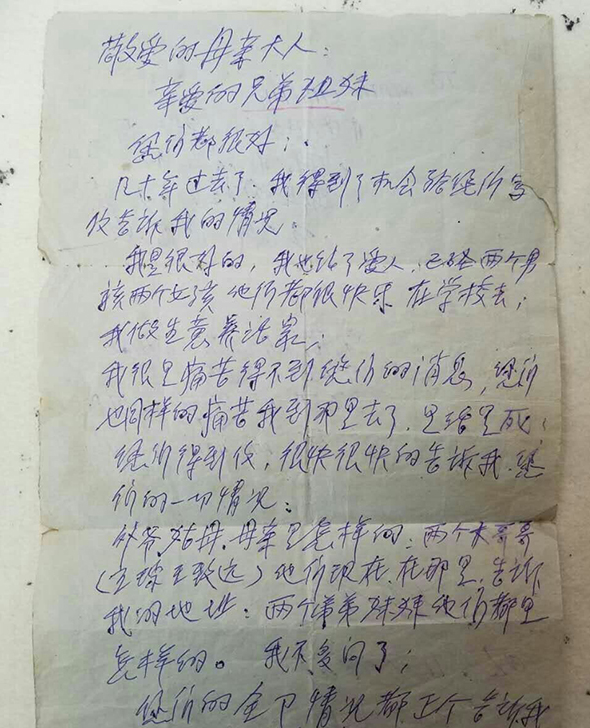 敬爱的母亲大人：
亲爱的兄弟姐妹
您们都很好；
几十年过去了 我得到了机会给您们写
信告诉我的情况。
我是很好的，我也结了爱人，已经两个男
孩两个女孩 他们都很快乐 在学校去；
我做生意养活家；
我很是痛苦得不到您们的消息，您们
也同样的痛苦我到那里去了，是活是死；
您们得到信，很快很快的告诉我，您
们的一切情况；
爷爷姑母，母亲是怎样的；两个大哥哥
（王琮王致远）他们现在，在那里，告诉
我的地址；两个弟弟妹妹他们都是
怎样的。 我不多问了；
您们的全卩情况都正个告诉我